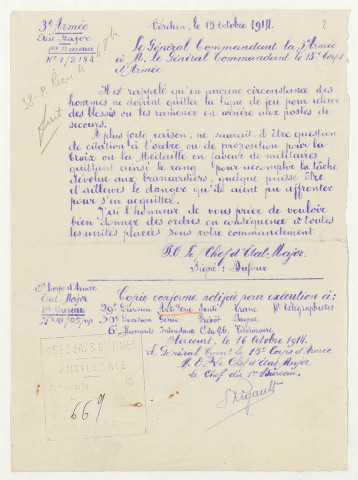 3e Armée
Etat-Major
1er Bureau
No 1/2194
Verdun, le 15 Octobre 1914.
Le Général Commandant la 3e Armée
à M. le Général Commandant le 15e Corps
d'Armée
Il est rappelé qu'en aucune circonstance des
hommes ne doivent quitter la ligne de feu pour relever
des blessés ou les ramener en arrière aux postes de
secours.
A plus forte raison, ne saurait-il être question
de citation à l'ordre ou de proposition pour la
Croix ou la Médaille en faveur de militaires
quittant ainsi le rang pour accomplir la tâche
dévolue aux brancardiers, quelque puisse être
d'ailleurs le danger qu'ils aient pu affronter
pour s'en acquitter.
J'ai l'honneur de vous prier de vouloir
bien donner des ordres en conséquence à toutes
les unités placées sous votre commandement.
P.O. Le Chef d'Etat-Major
Signé: Dufour
15e Corps d'Armée
Etat Major
1er Bureau
Copie conforme notifiée pour exécution à:
29e Division Artillerie Santé Télégraphistes
30e Division Génie Prévôt
6e Hussards Intendance Vétérinaire
le 16 Octobre 1914.
Le Général Comt le 15e Corps d'Armée
P.O. Le Chef d'Etat Major
Le Chef du 1er Bureau
15e CORPS D'ARMÉE
ARTILLERIE
667